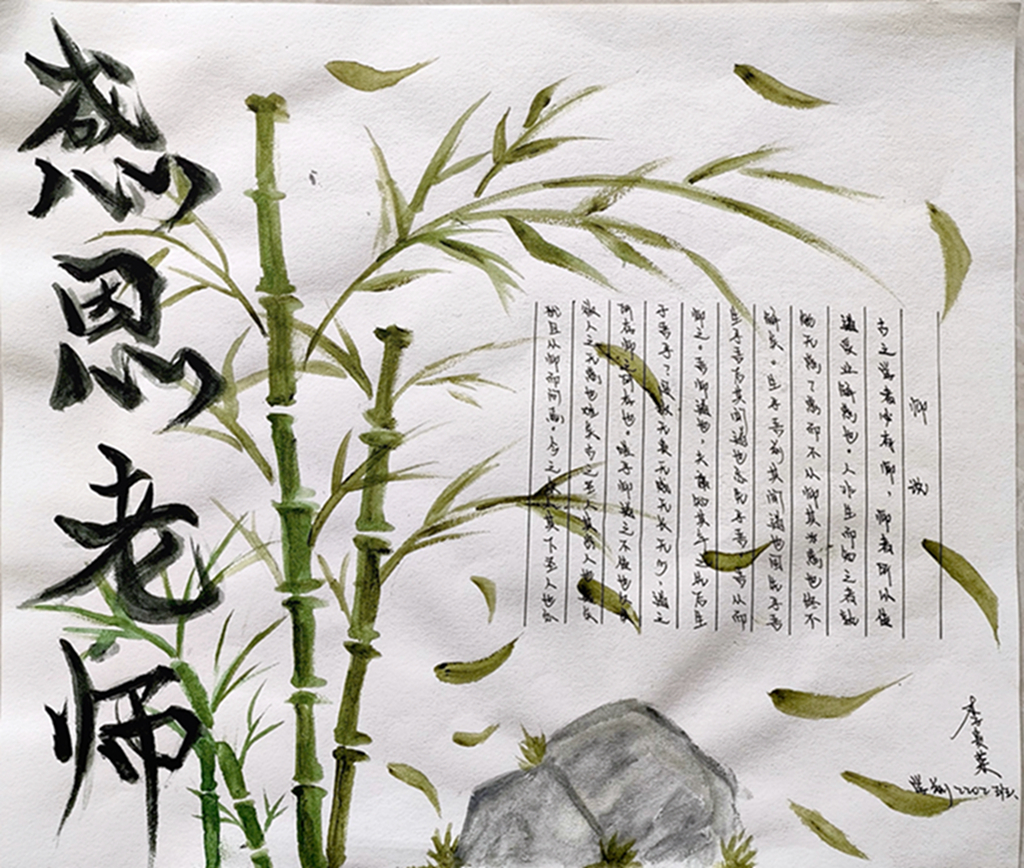 感恩老师
师说
古之学者必有师,师者所以传
道受业解惑也。人非生而知之者孰
能无惑?惑而不从师其为惑也终不
解矣。生乎吾前其闻道也固先乎吾
生乎吾后其闻道也亦先乎吾吾从而
师之。吾师道也,夫庸知其年之先后生
于吾乎?是故无贵无贱无长无少,道之
所存师之所存也。嗟乎师道之不传也
欲人之无惑也难矣古之圣人其出人
犹且从师而问焉。今之众人其下圣人也亦
学前2202班